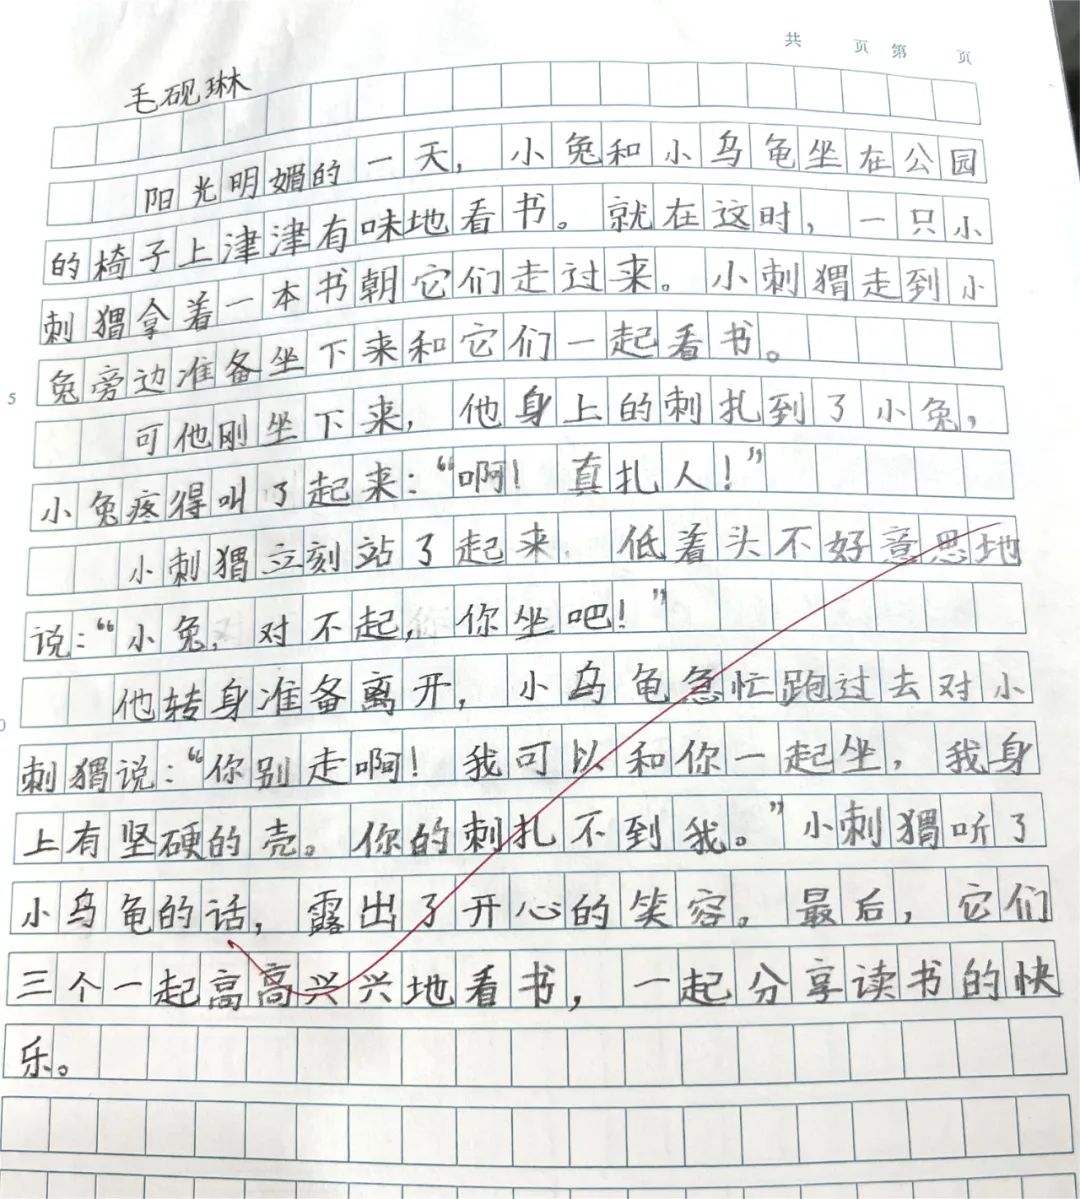 共 页 第 页
毛砚琳
阳光明媚的一天，小兔和小乌龟坐在公园
的椅子上津津有味地看书。就在这时，一只小
刺猬拿着一本书朝它们走过来。小刺猬走到小
兔旁边准备坐下来和它们一起看书。
5
可他刚坐下来，他身上的刺扎到了小兔，
小兔疼得叫了起来：“啊！真扎人！”
小刺猬立刻站了起来，低着头不好意思地
说：“小兔，对不起，你坐吧！”
他转身准备离开，小乌龟急忙跑过去对小
0
刺猬说：“你别走啊！我可以和你一起坐，我身
上有坚硬的壳。你的刺扎不到我。”小刺猬听了
小乌龟的话，露出了开心的笑容。最后，它们
三个一起高高兴兴地看书，一起分享读书的快
乐。